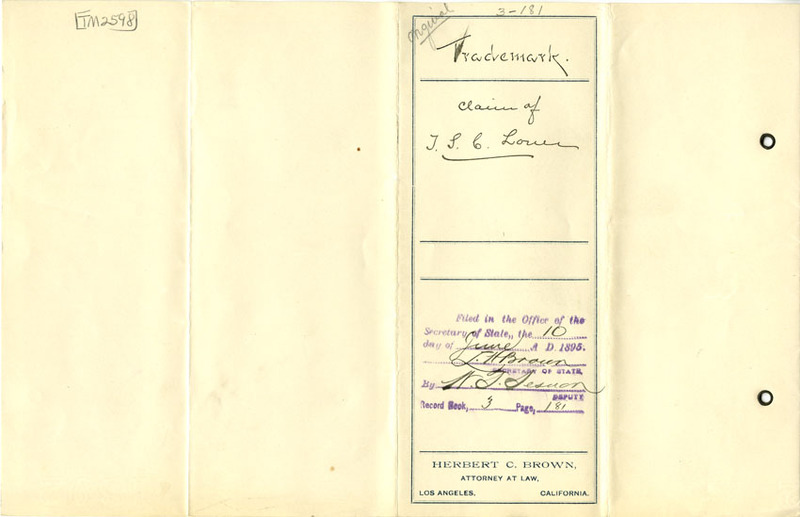 TM2598
original
3-181
Trademark.
Claim of
T. S. C. Lowe
Filed in the Office of the
Secretary of State,, the 10
day of June A. D. 1895.
L. H. Brown
SECRETARY OF STATE,
By W. T. Sesnon
DEPUTY
Record Book, 3 Page, 181
HERBERT C. BROWN,
ATTORNEY AT LAW,
LOS ANGELES. CALIFORNIA.